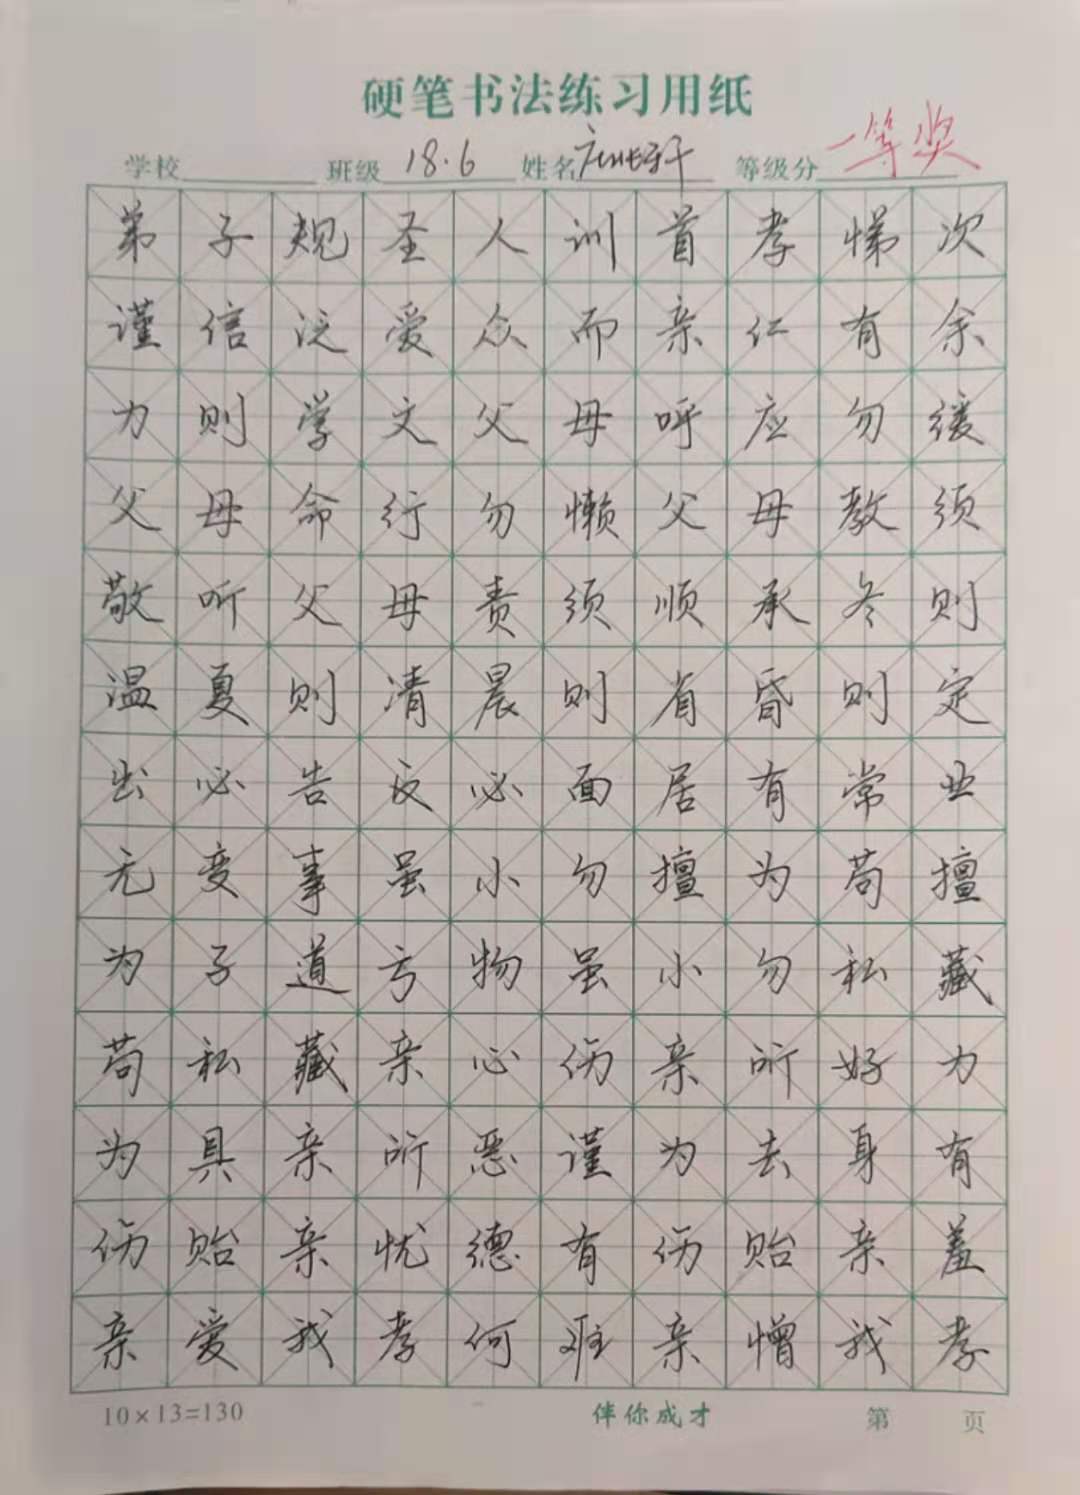 硬笔书法练习用纸
学校 班级 18.6 姓名 等级分 一等奖
弟子规圣人训首孝悌次
谨信泛爱众而亲仁有余
力则学文父母呼应勿缓
父母命行勿懒父母教须
敬听父母责须顺承冬则
温夏则凊晨则省昏则定
出必告反必面居有常业
无变事虽小勿擅为苟擅
为子道亏物虽小勿私藏
苟私藏亲心伤亲所好力
为具亲所恶谨为去身有
伤贻亲忧德有伤贻亲羞
亲爱我孝何难亲憎我孝
10×13=130 伴你成才 第 页